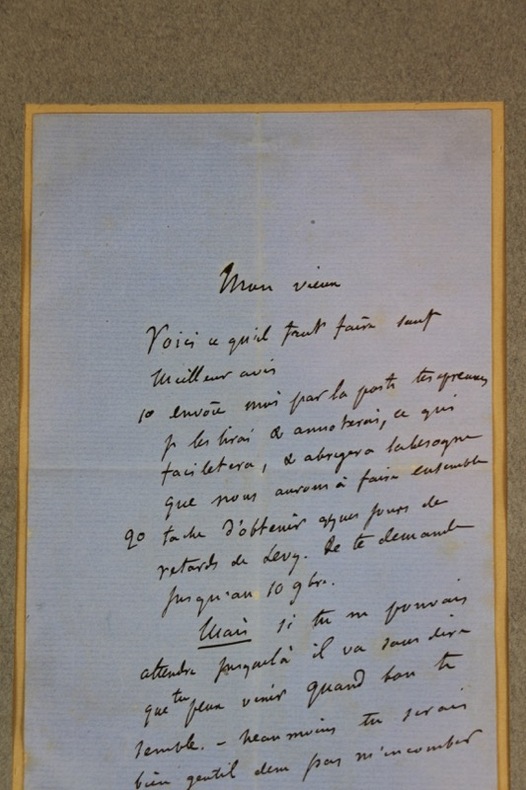 Mon vieux
Voici ce qu'il faut faire sauf
meilleur avis
1o envoie moi par la poste tes épreuves
je les lirai & annoterai, ce qui
facilitera, & abregera la besogne
que nous aurons à faire ensemble
2o tache d'obtenir qques jours de
retards de Levy. Je te demande
jusqu'au 10 9bre.
Mais si tu ne pouvais
attendre jusque là il va sans dire
que tu peux venir quand bon te
semble. - neanmoins tu serais
bien gentil de ne pas m'incomber